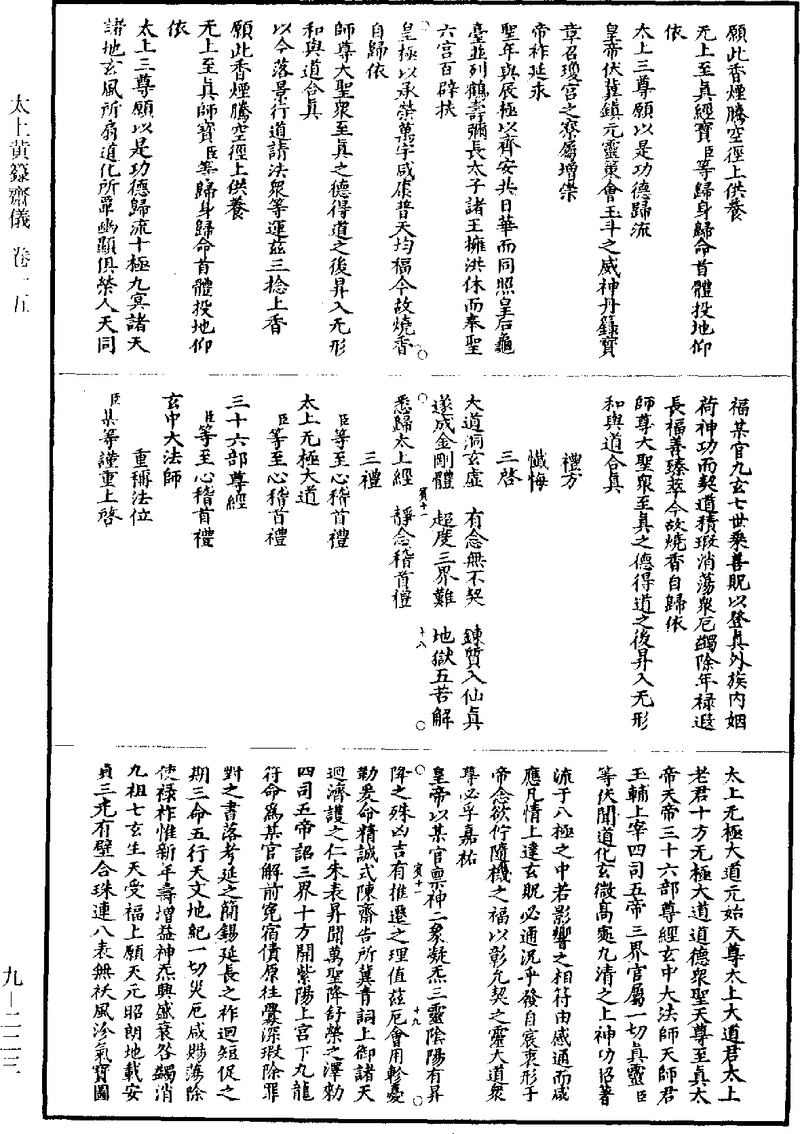 太上黄籙齋儀 卷一五
九—二二三
願此香煙騰空徑上供養
无上至真經寶臣等歸身歸命首體投地仰
依
太上三尊願以是功德歸流
皇帝伏冀鎮元靈策會玉斗之威神丹籙寶
章召瓊宮之寮屬增崇
帝祚延永
聖年與辰極以齊安共日華而同照皇后龜
臺並列鶴壽彌長太子諸王擁洪休而奉聖
六宮百辟扶
皇極以承榮萬宇咸康普天均福今故燒香
自歸依
師尊大聖衆至真之德得道之後昇入无形
和與道合真
以今落景行道請法衆等運茲三捻上香
願此香煙騰空徑上供養
无上至真師寶臣等歸身歸命首體投地仰
依
太上三尊願以是功德歸流十極九冥諸天
諸地玄風所扇道化所覃幽顯俱榮人天同
福某官九玄七世乘善貺以登真外族內姻
荷神功而契道積瑕消蕩衆厄蠲除年禄遐
長福善臻萃今故燒香自歸依
師尊大聖衆至真之德得道之後昇入无形
和與道合真
禮方
懺悔
三啓
大道洞玄虛 有念無不契 鍊質入仙真
遂成金剛體 超度三界難 地獄五苦解
悉歸太上經 靜念稽首禮
三禮
臣等至心稽首禮
太上无極大道
臣等至心稽首禮
三十六部尊經
臣等至心稽首禮
玄中大法師
重稱法位
臣某等謹重上啓
太上无極大道元始天尊太上大道君太上
老君十方无極大道道德衆聖天尊至真太
帝天帝三十六部尊經玄中大法師天師君
玉輔上宰四司五帝三界官屬一切真靈臣
等伏聞道化玄微高處九清之上神功招著
流于八極之中若影響之相符由感通而咸
應凡情上達玄貺必通況乎發自宸衷形于
帝念欲佇隨機之福以彰允契之靈大道衆
尊必孚嘉祐
皇帝以某官禀神二象凝炁三靈陰陽有昇
降之殊凶吉有推遷之理值茲厄會用軫憂
勤爰命精誠式陳齋告所冀青詞上御諸天
迴濟護之仁朱表昇聞萬聖降舒榮之澤勑
四司五帝詔三界十方開紫陽上宮下九龍
符命為某官解前寃宿債原往釁深瑕除罪
對之書落考延之簡錫延長之祚迴短促之
期三命五行天文地紀一切災厄咸賜蕩除
使禄祚惟新年壽增益神炁興盛衰咎蠲消
九祖七玄生天受福上願天元昭朗地載安
貞三光有璧合珠連八表無祅風沴氣寶圖